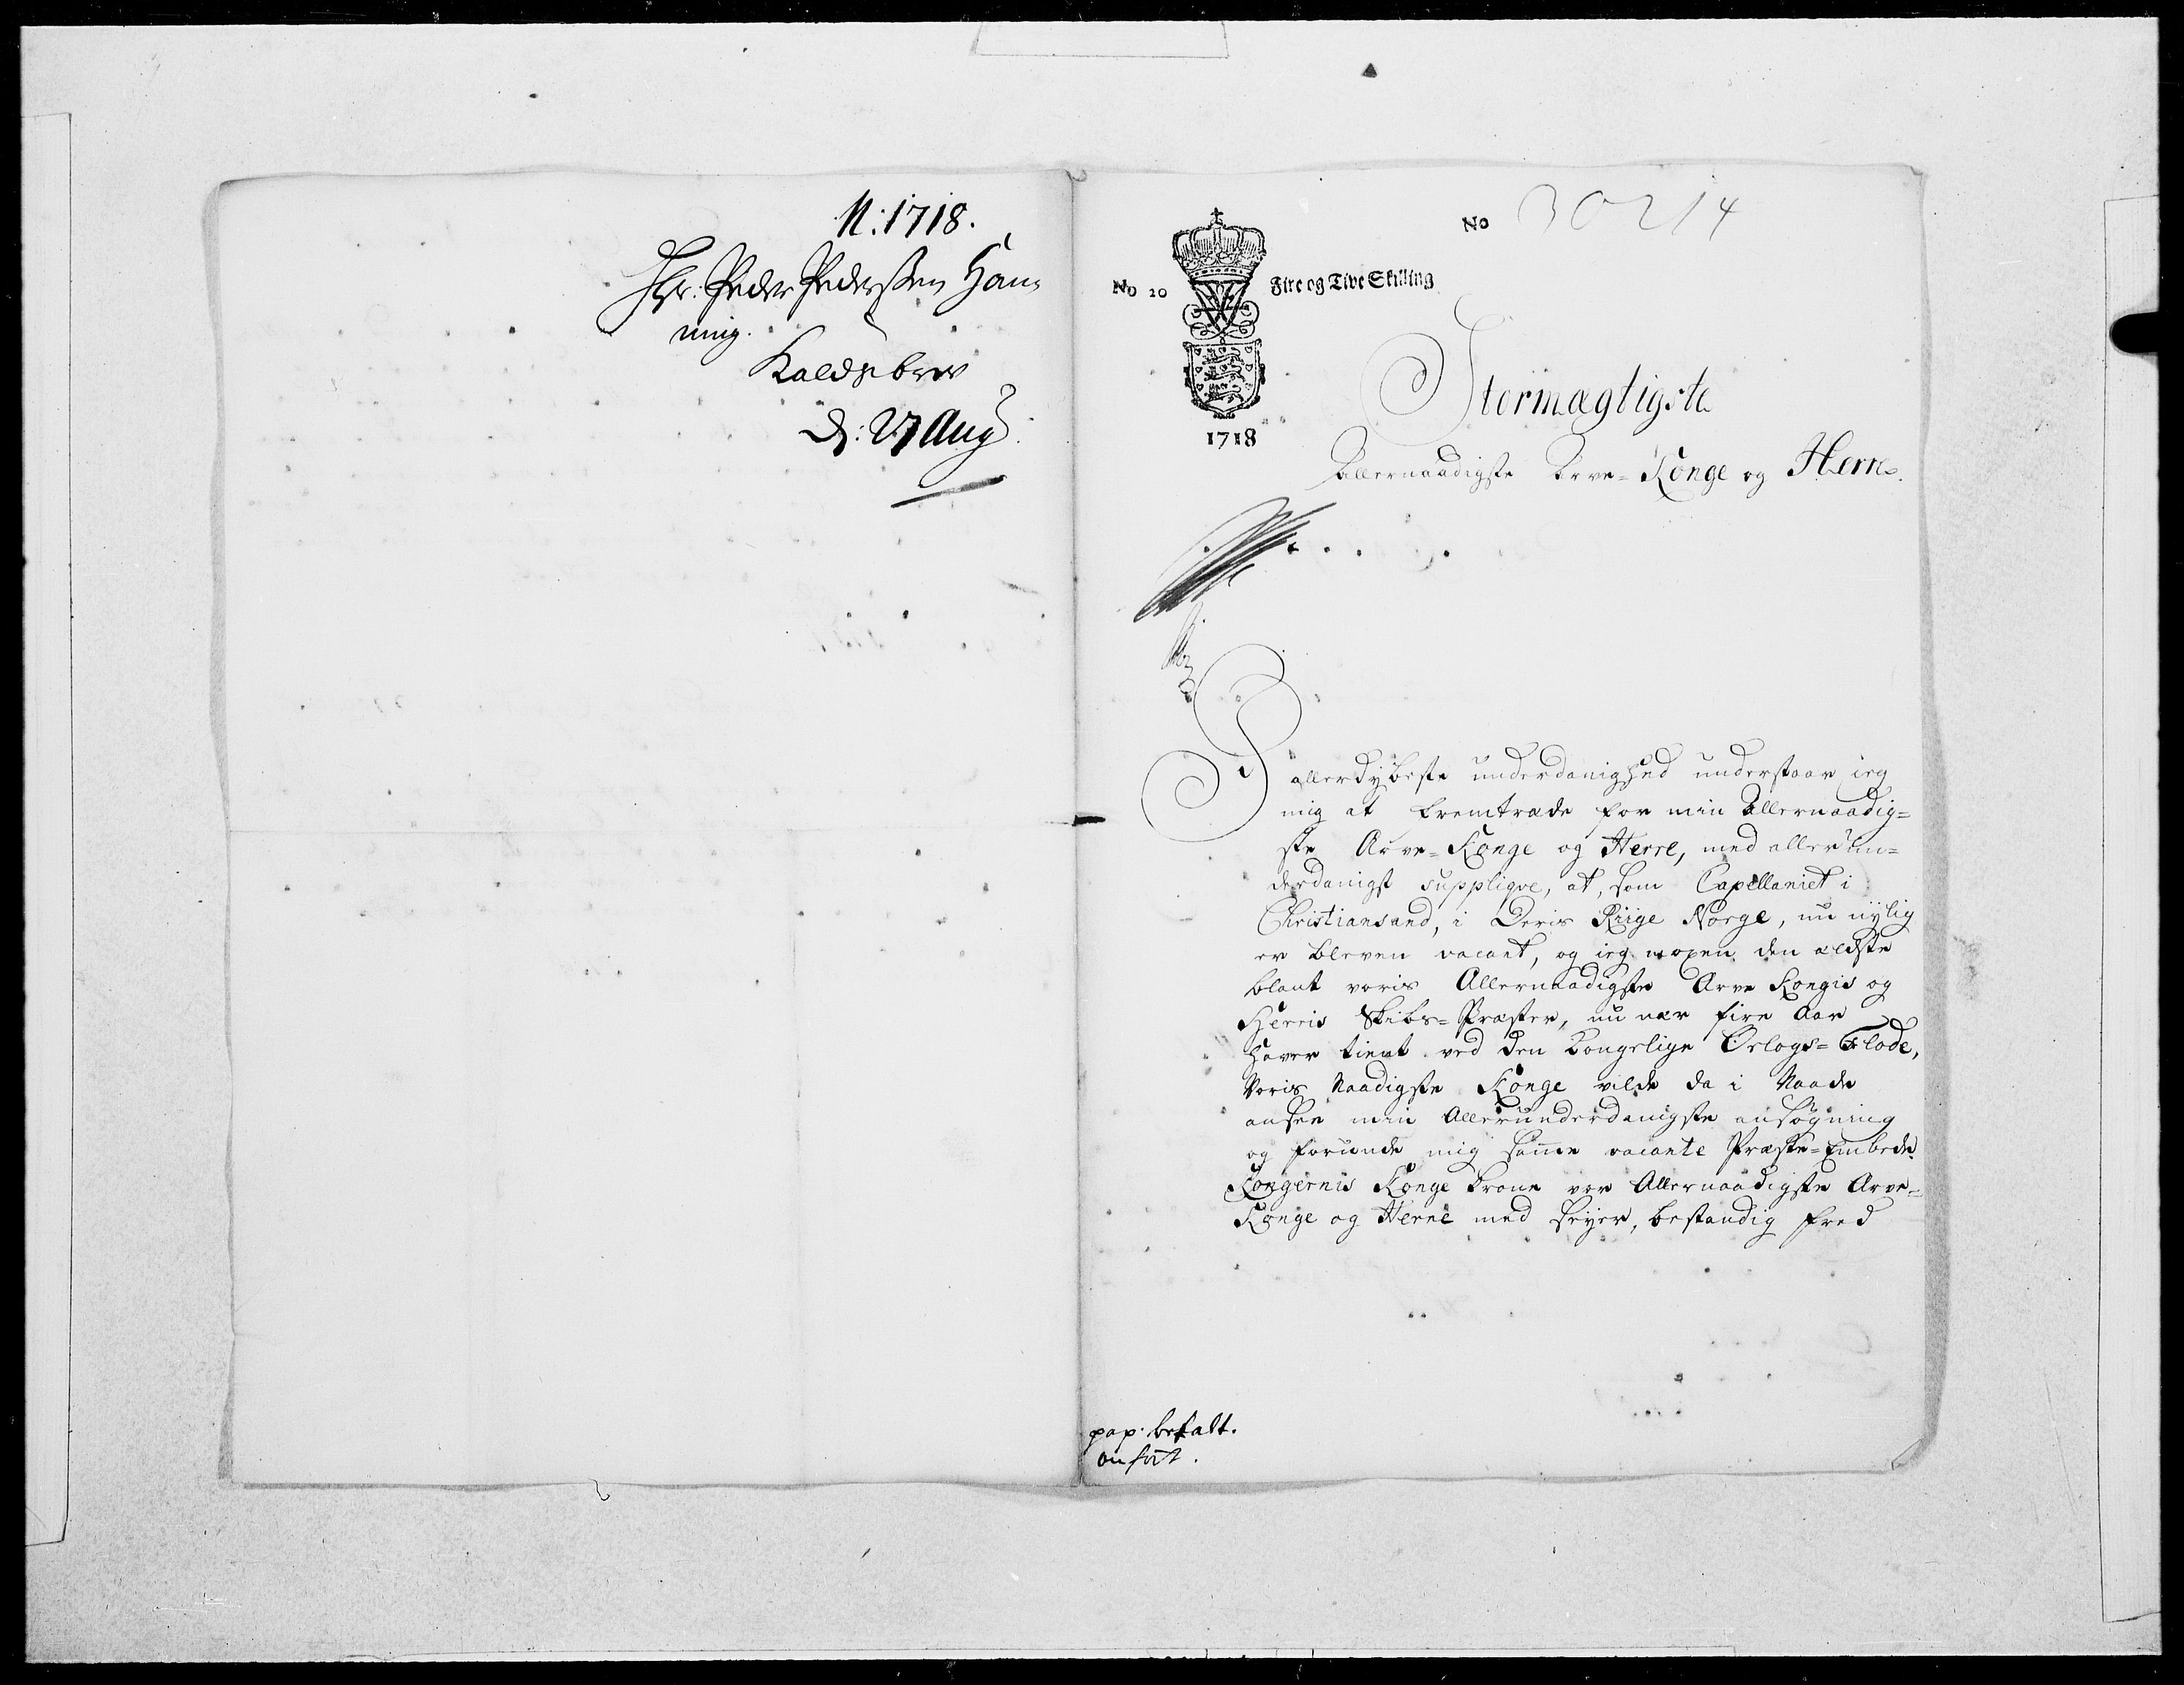 N: 1718.
Hr: Peder Pederssen Hau¬
ning.
Kaldsbrev
d: 27 Aug
No 30214
No 20 Fire og Tive Skilling
1718
Stormægtigste
Allernaadigste Arve-Konge og Herre.
I allerdybeste underdanighed understaar ieg
mig at fremtræde for min Allernaadig=
ste Arve=Konge og Herre, med allerun=
derdanigst supplique, at, som Capellaniet i
Christiansand, i Deris Riige Norge, nu nylig
er bleven vacant, og ieg, den ældste
blant voris Allernaadigste Arve Kongis og
Herris Skibs=Præster, nu nær fire Aar
haver tient ved den Kongelige Orlogs=Flode,
Voris Naadigste Konge vilde da i Naade
ansee min Allerunderdanigste ansøgning
og forunde mig samme vacante Præste=Embede.
Kongernis Konge krone vor Allernaadigste Arve=
Konge og Herre med Seyer, bestandig fred
pap. betalt.